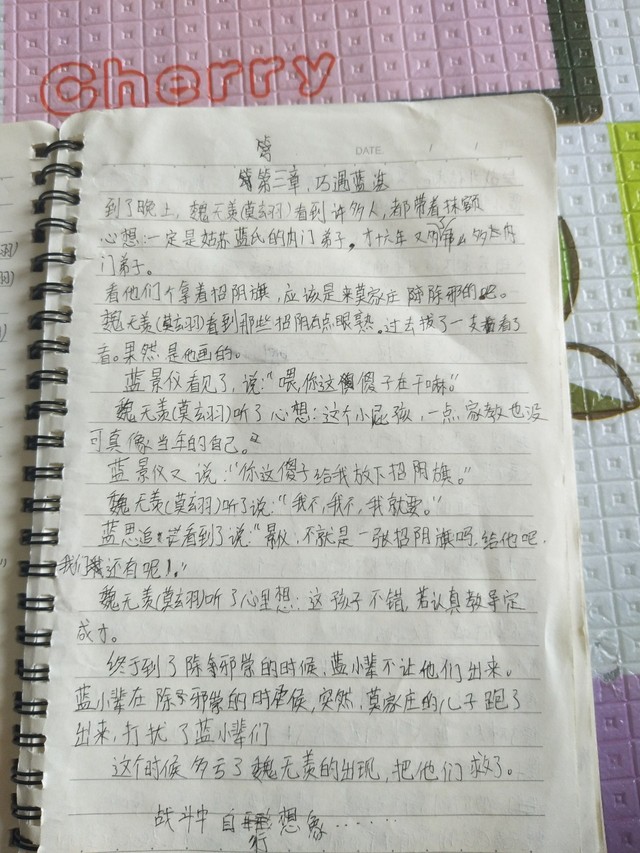 Cherry
DATE. / /
第三章，巧遇蓝湛
到了晚上，魏无羡(莫玄羽)看到许多人，都带着抹额
心想：一定是姑苏蓝氏的内门弟子，才十六年又多内
门弟子。
看他们个拿着招阴旗，应该是来莫家庄除邪的吧。
魏无羡(莫玄羽)看到那些招阴旗点眼熟。过去拔了一支看了
音。果然是他画的。
蓝景仪看见了，说："喂，你这傻子在干嘛。"
魏无羡(莫玄羽)听了心想：这个小屁孩，一点家教也没
可真像当年的自己。
蓝景仪又说："你这傻子给我放下招阴旗。"
魏无羡(莫玄羽)听了说："我不，我不，我就要。"
蓝思追看到了说："景仪，不就是一张招阴旗吗，给他吧，
我们还有呢！"
魏无羡(莫玄羽)听了心里想：这孩子不错，若认真教导定
成才。
终于到了除邪祟的时候，蓝小辈不让他们出来。
蓝小辈在除邪祟的时候，突然，莫家庄的儿子跑了
出来，打扰了蓝小辈们
这个时候多亏了魏无羡的出现，把他们救了。
战斗中自行想象……